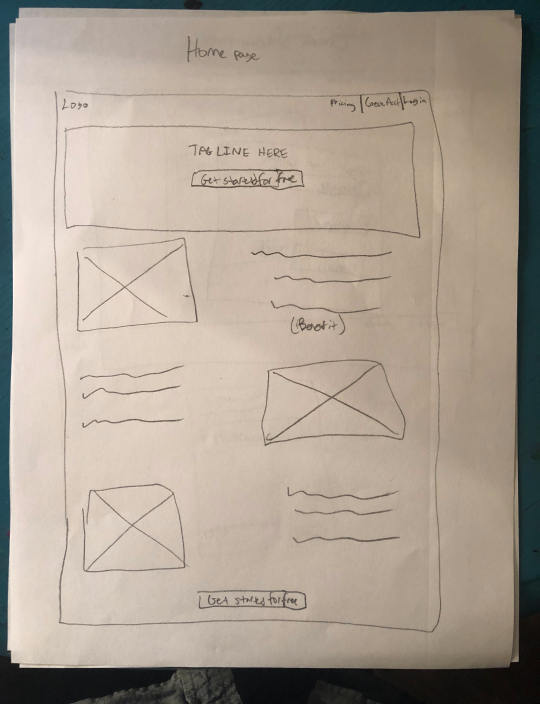 Home page
Logo
Pricing | Create Acct | Login
TAGLINE HERE
Get started for free
(Benefit)
Get started for free